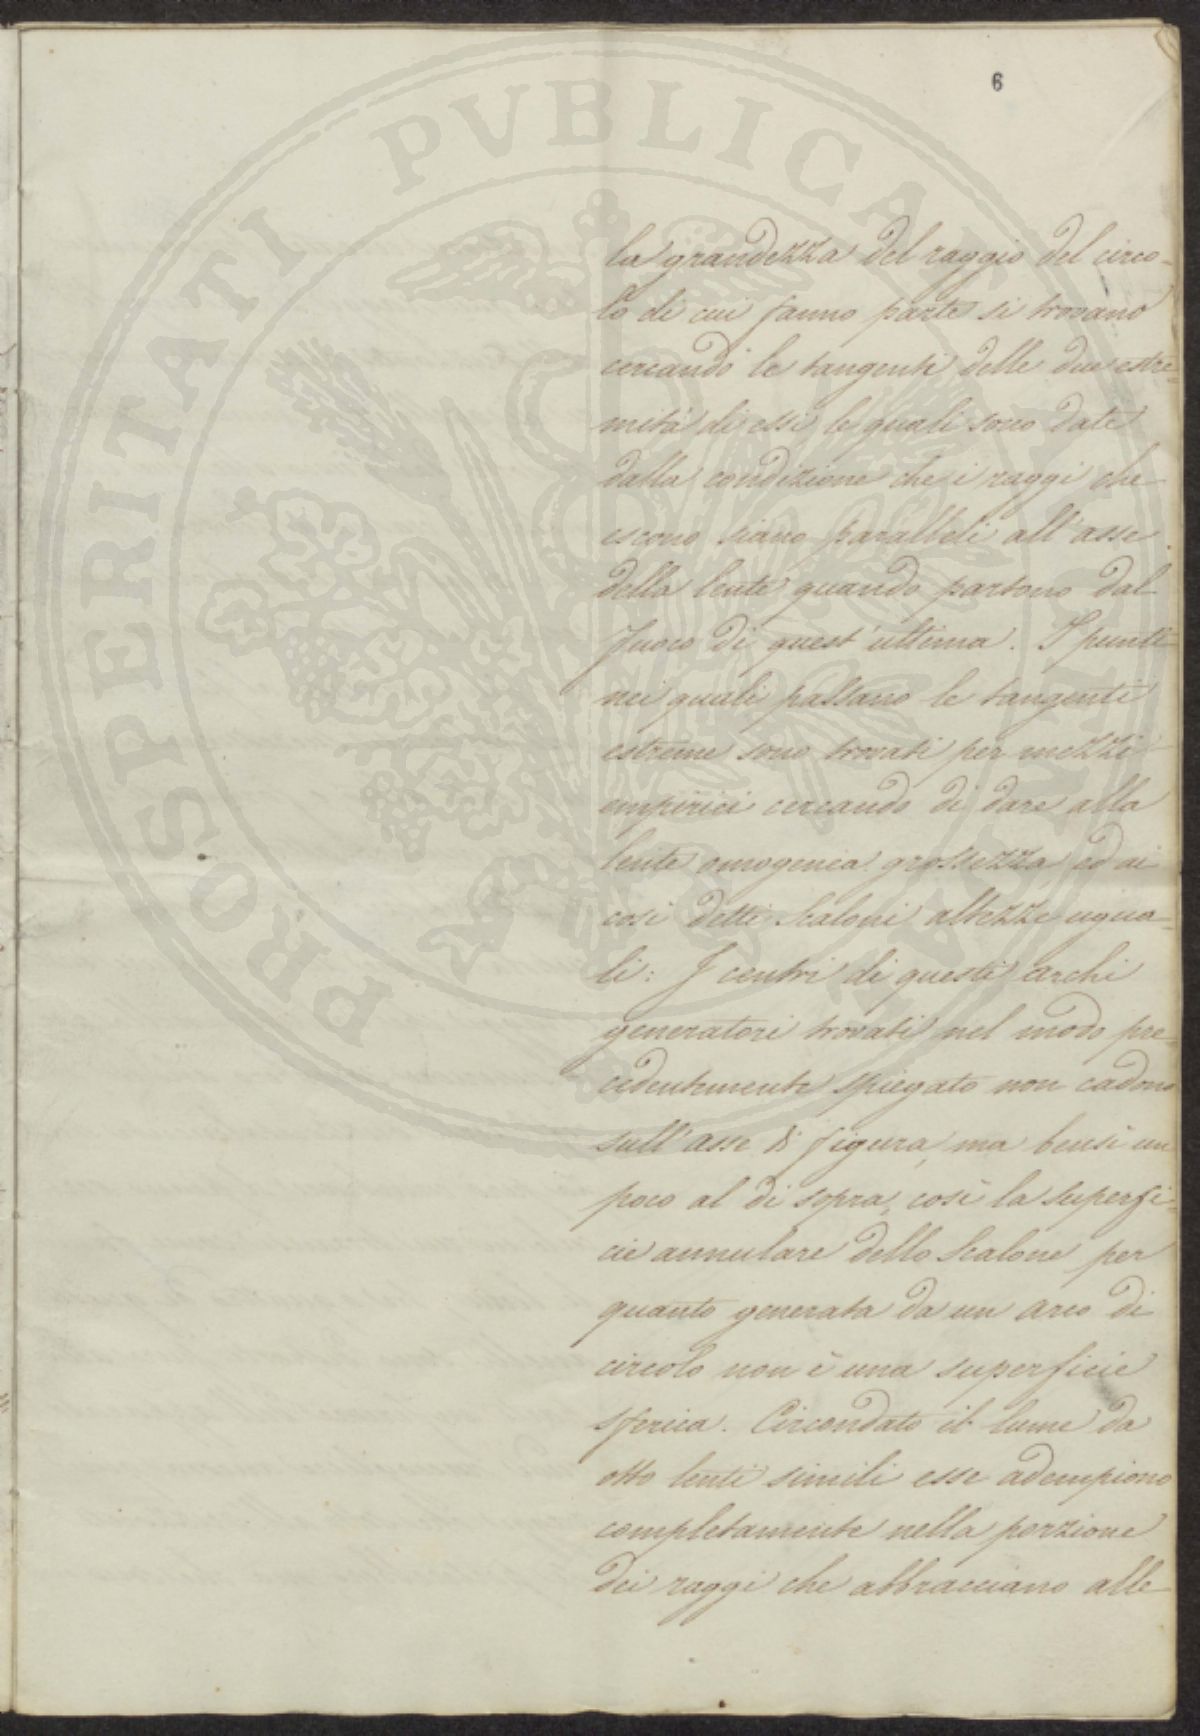 6
PROSPERITATI PVBLICAE
la grandezza del raggio del circo-
lo di cui fanno parte si trovano
cercando le tangenti delle due estre=
mità di essi le quali sono date
dalla condizione che i raggi che
escono siano paralleli all'asse
della lente quando partono dal
fuoco di quest'ultima. I punti
nei quali passano le tangenti
estreme sono trovati per mezzi
empirici cercando di dare alla
lente omogenea grossezza, ed ai
così detti Scaloni altezze ugua=
li: I centri di questi archi
generatori trovati nel modo pre=
cedentemente spiegato non cadono
sull'asse di figura, ma bensì un
poco al di sopra, così la superfi=
cie annulare dello Scalone per
quanto generata da un arco di
circolo non è una superficie
sferica. Circondato il lume da
otto lenti simili esse adempiono
completamente nella porzione
dei raggi che abbracciano alle